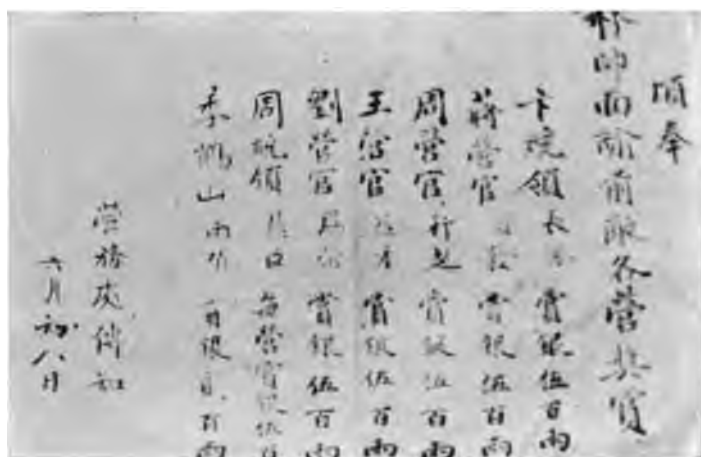 頃奉
帥面諭前敵各營共賞
卞統領長 賞銀伍百兩
蔣營官 賞銀伍百兩
周營官行芝賞銀伍百兩
王營官 賞銀伍百兩
劉營官 賞銀伍百兩
周統領 每營賞銀伍百
李鶴山兩 百兩
營務處傳知
六月初八日